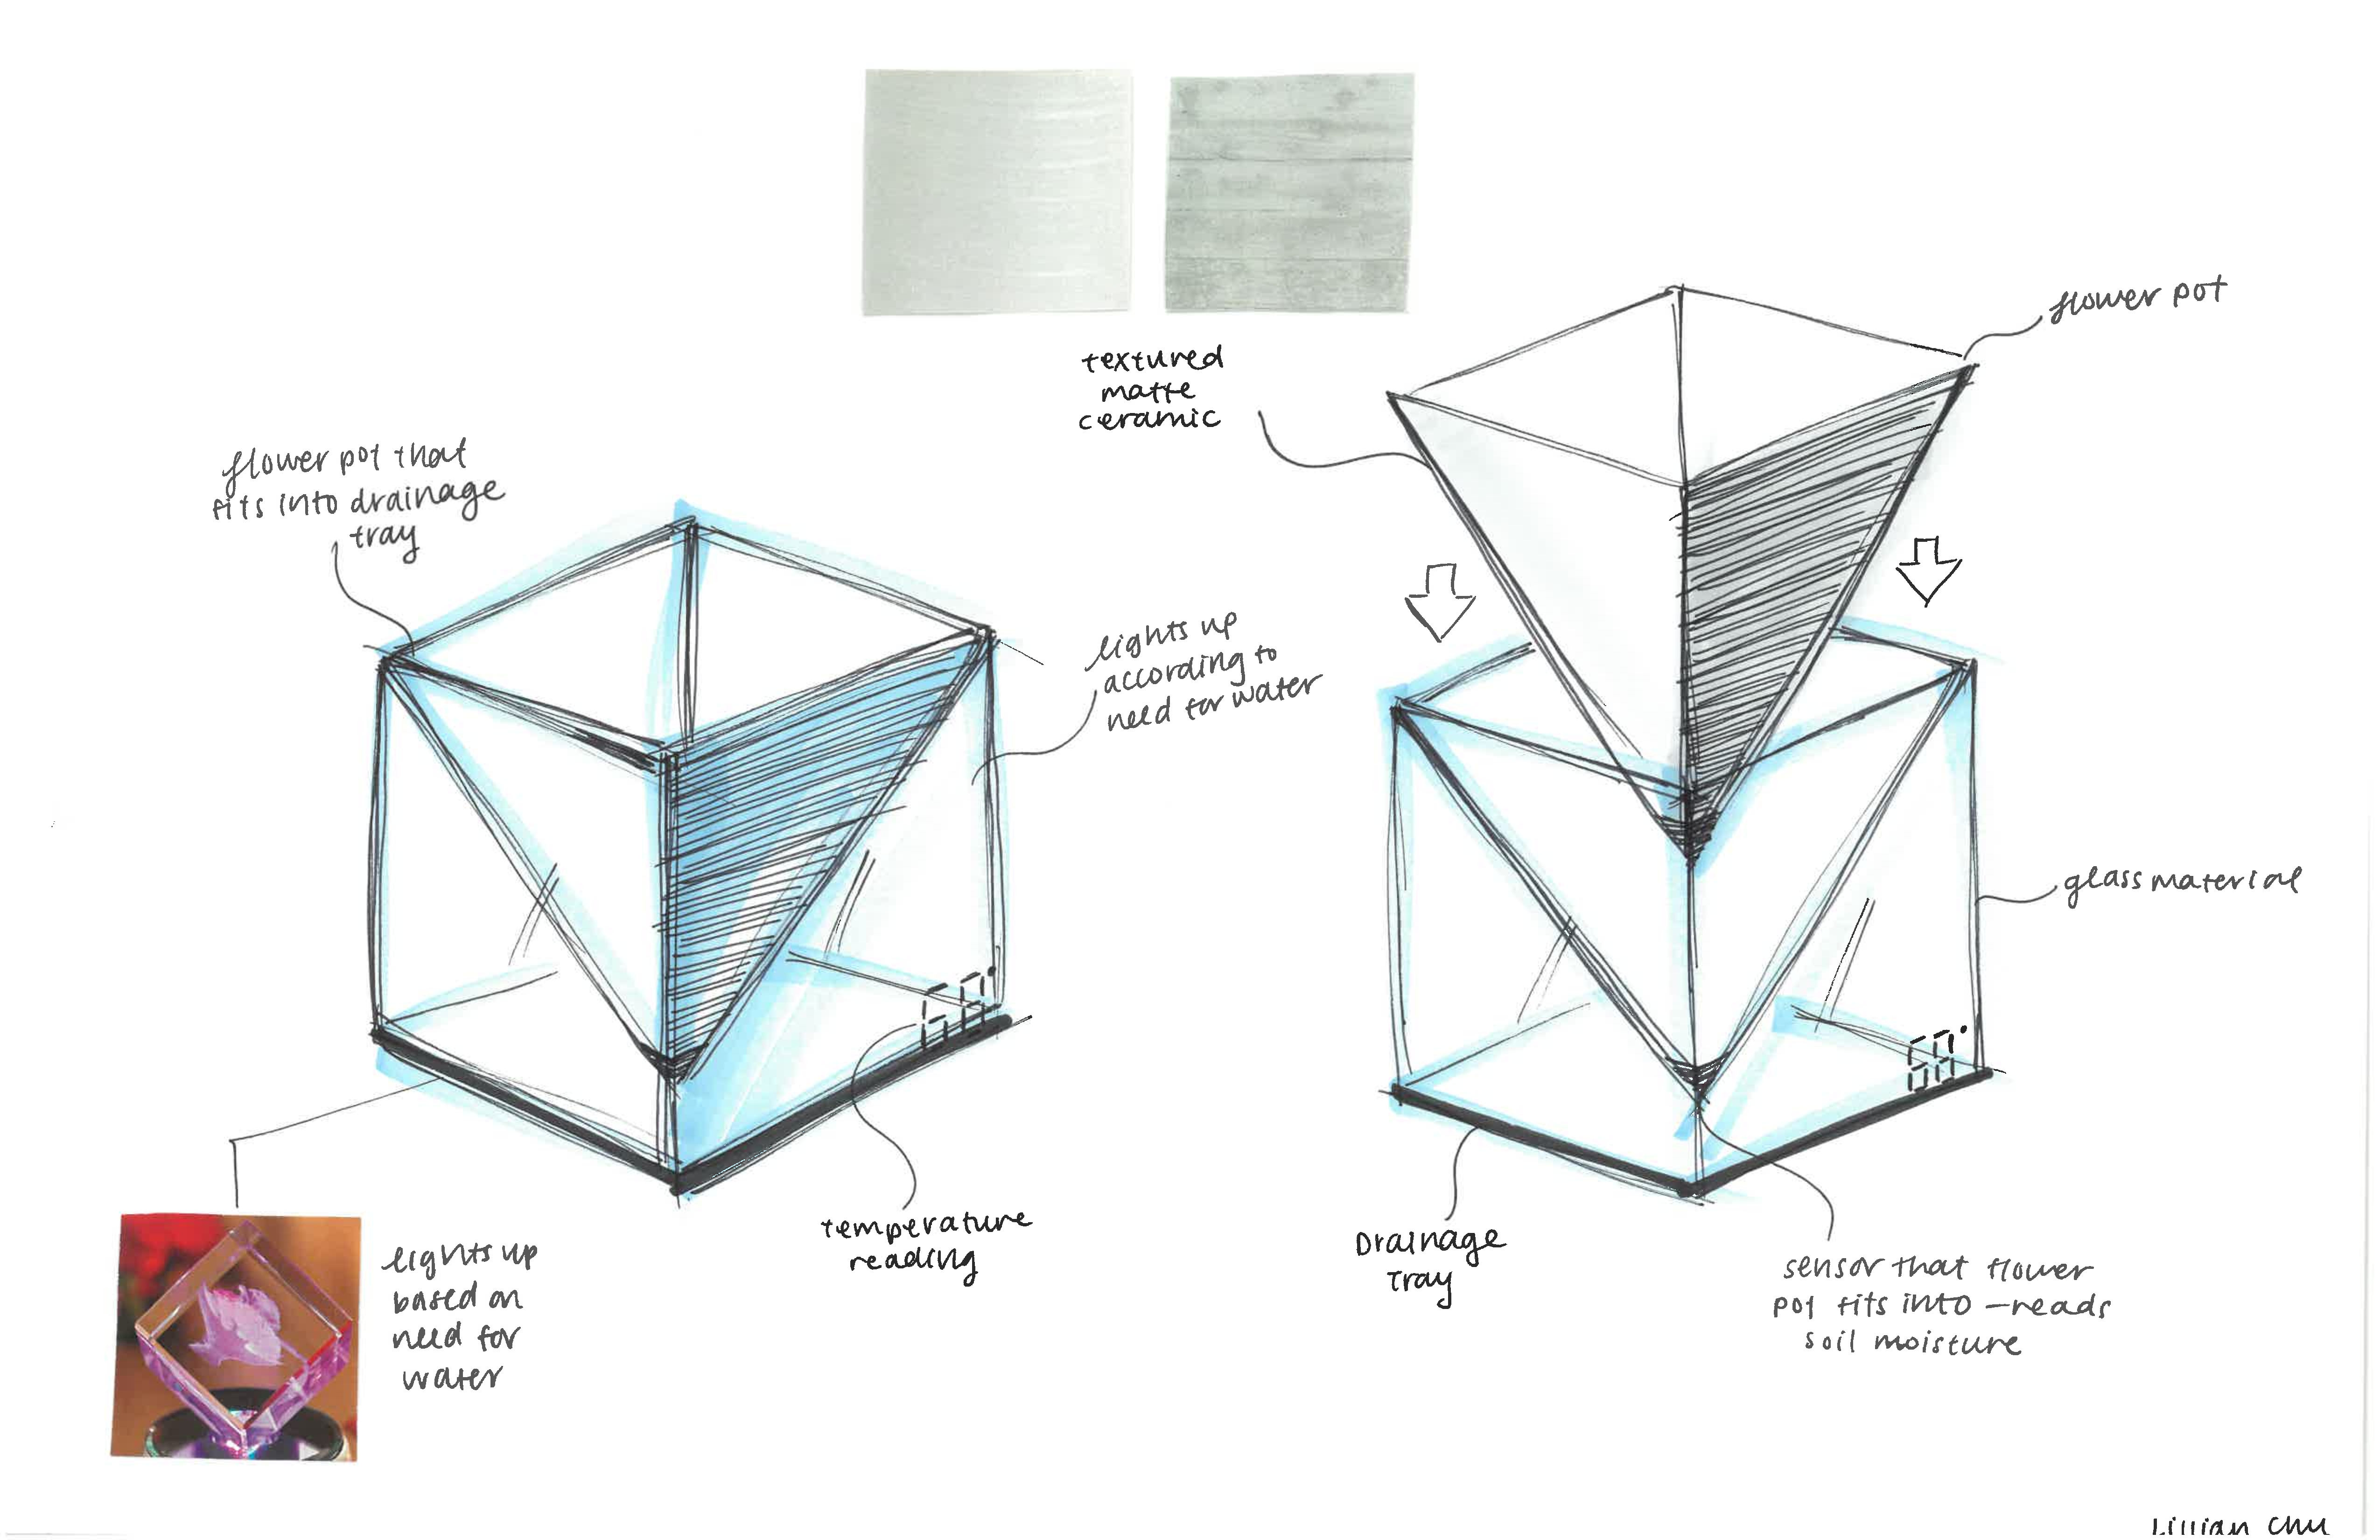 textured
matte
ceramic
flower pot
flower pot that
fits into drainage
tray
lights up
according to
need for water
glass material
temperature
reading
lights up
based on
need for
water
Drainage
Tray
sensor that flower
pot fits into - reads
soil moisture
Lillian Chu